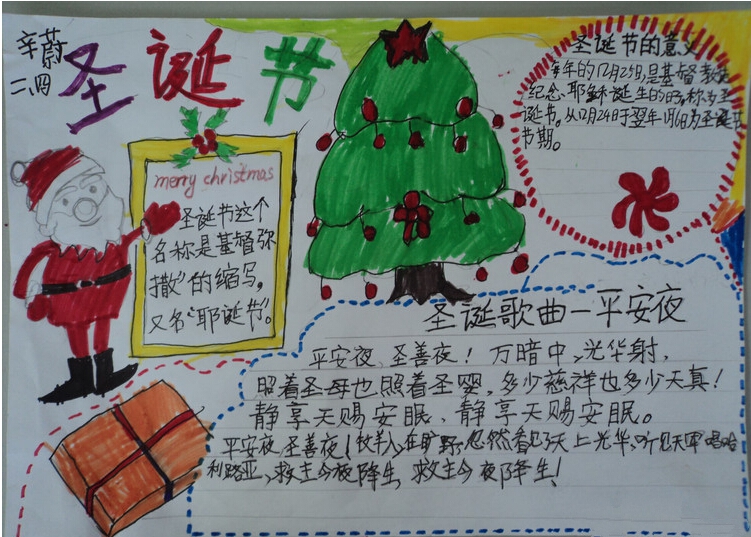 辛蔚
二.四
圣诞节
merry christmas
圣诞节这个
名称是基督弥
撒”的缩写，
又名“耶诞节”。
圣诞节的意义
每年的12月25日,是基督教徒
纪念、耶稣诞生的日子,称为圣
诞节。从12月24日于翌年1月6日为圣诞节
节期。
圣诞歌曲一平安夜
平安夜、圣善夜！万暗中，光华射，
照着圣母也照着圣婴，多少慈祥也多少天真！
静享天赐安眠、静享天赐安眠。
平安夜、圣善夜！牧羊人,在旷野,忽然看见天上光华、听见天军唱哈
利路亚、救主今夜降生 救主今夜降生！